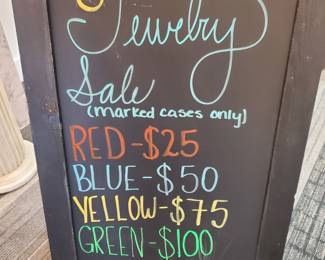 Jewelry
Sale
(marked cases only)
RED-$25
BLUE-$50
YELLOW-$75
GREEN-$100